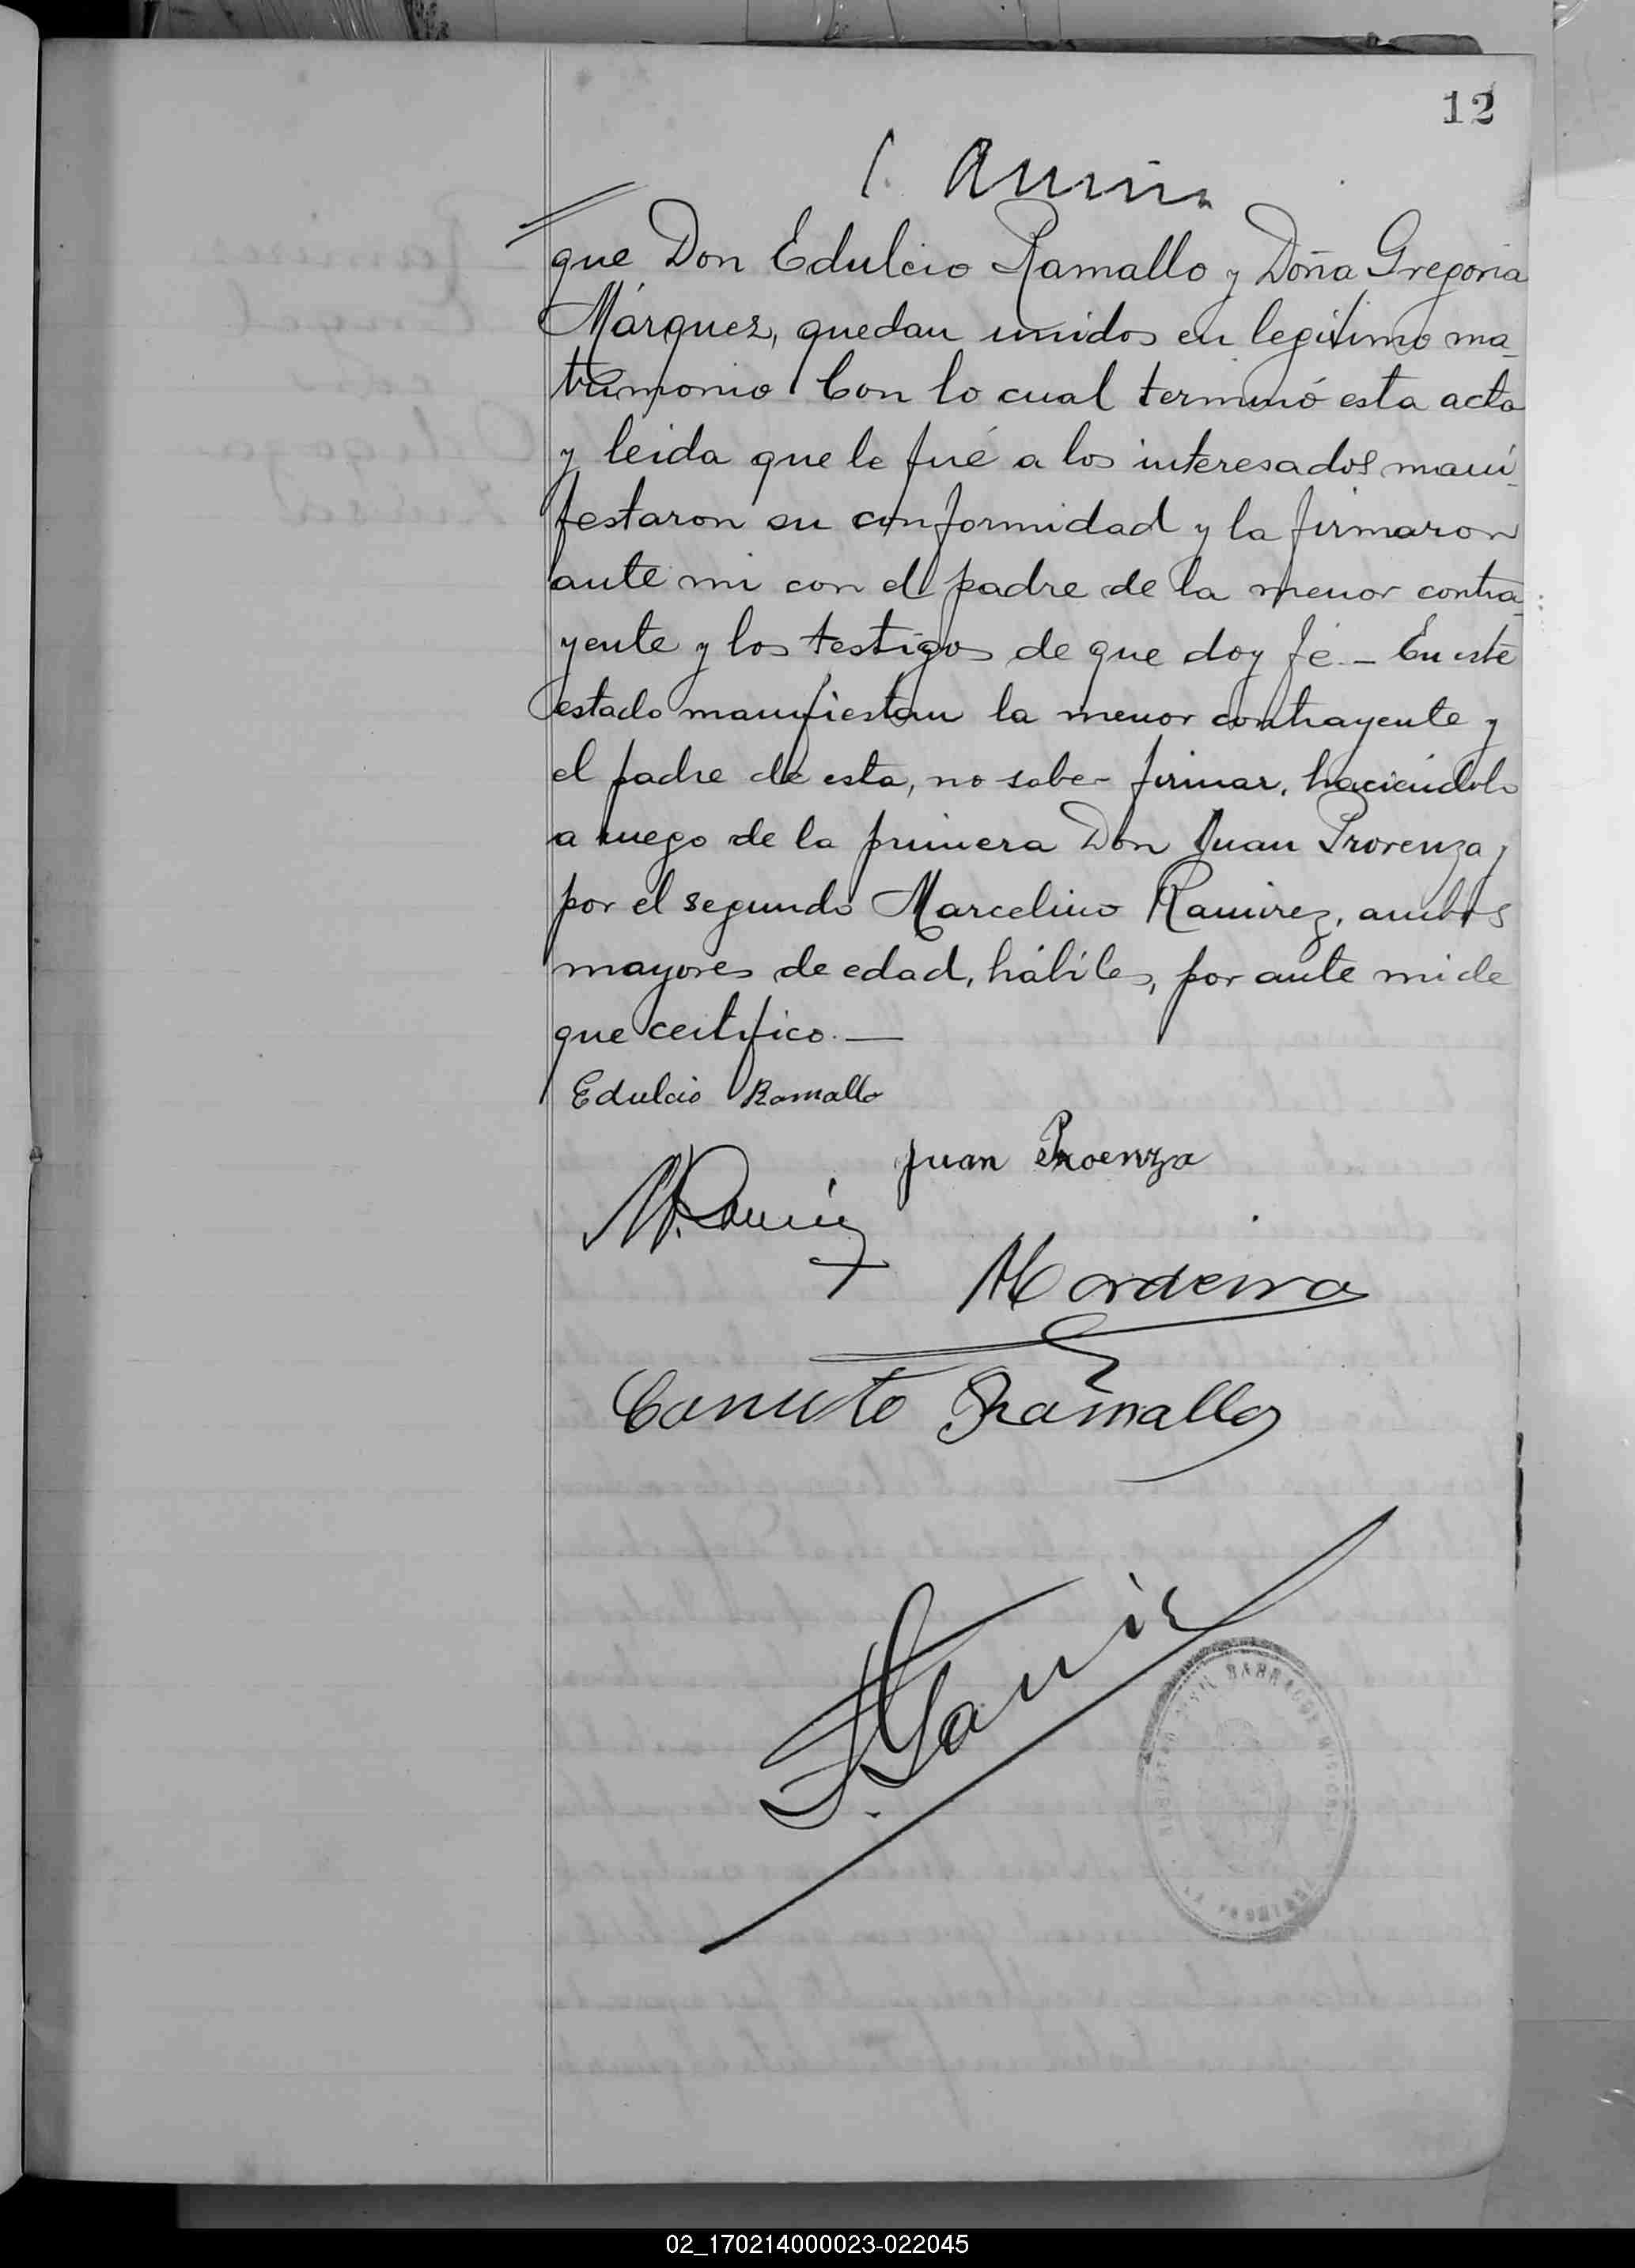 12
que Don Edulcio Ramallo y Doña Gregoria
Márquez, quedan unidos en legítimo ma-
trimonio. Con lo cual terminó esta acta
y leida que le fué a los interesados mani-
festaron su conformidad y la firmaron
ante mi con el padre de la menor contra-
yente y los testigos de que doy fé. – En este
estado manifiestan la menor contrayente y
el padre de esta, no saber firmar, haciéndolo
a ruego de la primera Don Juan Provenza y
por el segundo Marcelino Ramirez, ambos
mayores de edad, hábiles, por ante mi de
que certifico. —
Edulcio Ramallo
Juan Proenza
M. Ramirez
Canuto Ramallo
REGISTRO CIVIL
02_170214000023-022045